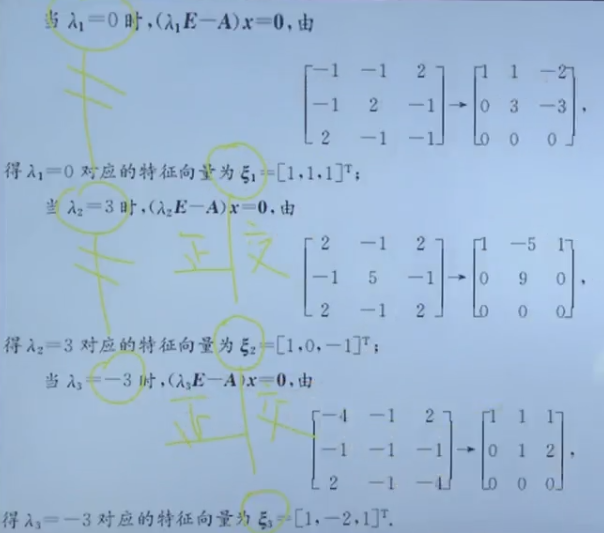 当 λ₁=0时,(λ₁E-A)x=0,由
[-1 -1 2; -1 2 -1; 2 -1 -1] → [1 1 -2; 0 3 -3; 0 0 0],
得 λ₁=0 对应的特征向量为 ξ₁=[1,1,1]ᵀ;
当 λ₂=3时,(λ₂E-A)x=0,由
正交
[2 -1 2; -1 5 -1; 2 -1 2] → [1 -5 1; 0 9 0; 0 0 0],
得 λ₂=3 对应的特征向量为 ξ₂=[1,0,-1]ᵀ;
当 λ₃=-3时,(λ₃E-A)x=0,由
正交
[-4 -1 2; -1 -1 -1; 2 -1 -4] → [1 1 1; 0 1 2; 0 0 0],
得 λ₃=-3 对应的特征向量为 ξ₃=[1,-2,1]ᵀ.